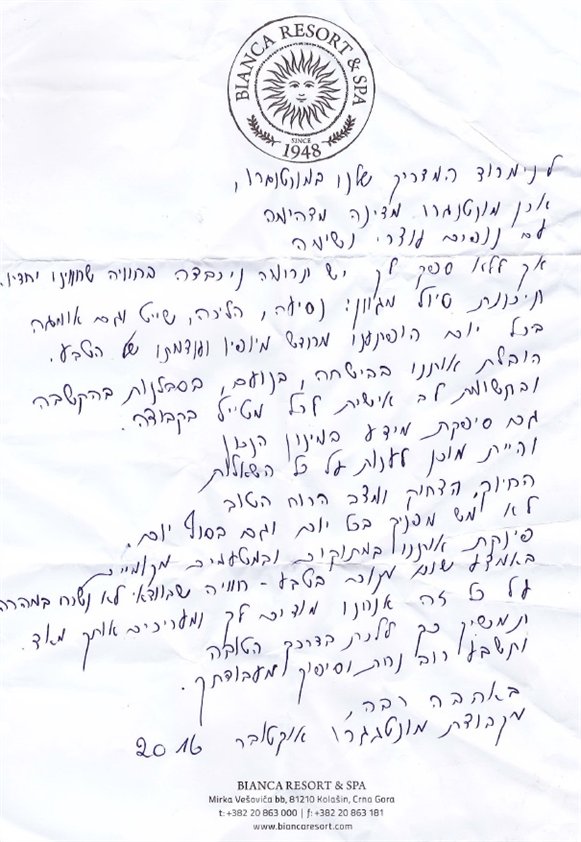 BIANCA RESORT & SPA
SINCE
1948
לנימרוד המדריק שלנו במונטנגרו,
אכן מונטנגרו מדינה מדהימה
עם נופים עוצרי נשימה
אך ללא ספק לך יש תרומה ניכבדה בחוויה שחווינו יחדיו.
תיכננת טיול מגוון: נסיעה, הליכה, שייט וגם אומגה
בכל יום הופתענו מחדש מיופין ועוצמתו של הטבע.
הובלת אותנו בבישחה, בנועם, בסבלנות בהקשבה
ובתשומת לב אישית לכל מטייל בקבוצה.
גם סיפקת מידע במינון הנכון
והיית מוכן לענות על כל השאלות
החיוך, הצחוק ומצב הרוח הטוב
לא מש מפניך בכל יום וגם בסוף יום.
פינקת אותנו במתוקים ובמטעמים מקומיים
באמצע שום מקום בטבע - חוויה שבוודאי לא נשכח במהרה
על כל זה אנחנו מודים לך ומעריכים אותך מאד.
תמשיך כך ללכת בדרכך הטובה
ותשבע רוב נחת וסיפוק מעבודתך.
באהבה רבה,
מקבוצת מונטנגרו אוקטובר 2016
BIANCA RESORT & SPA
Mirka Vešovića bb, 81210 Kolašin, Crna Gora
t: +382 20 863 000 | f: +382 20 863 181
www.biancaresort.com